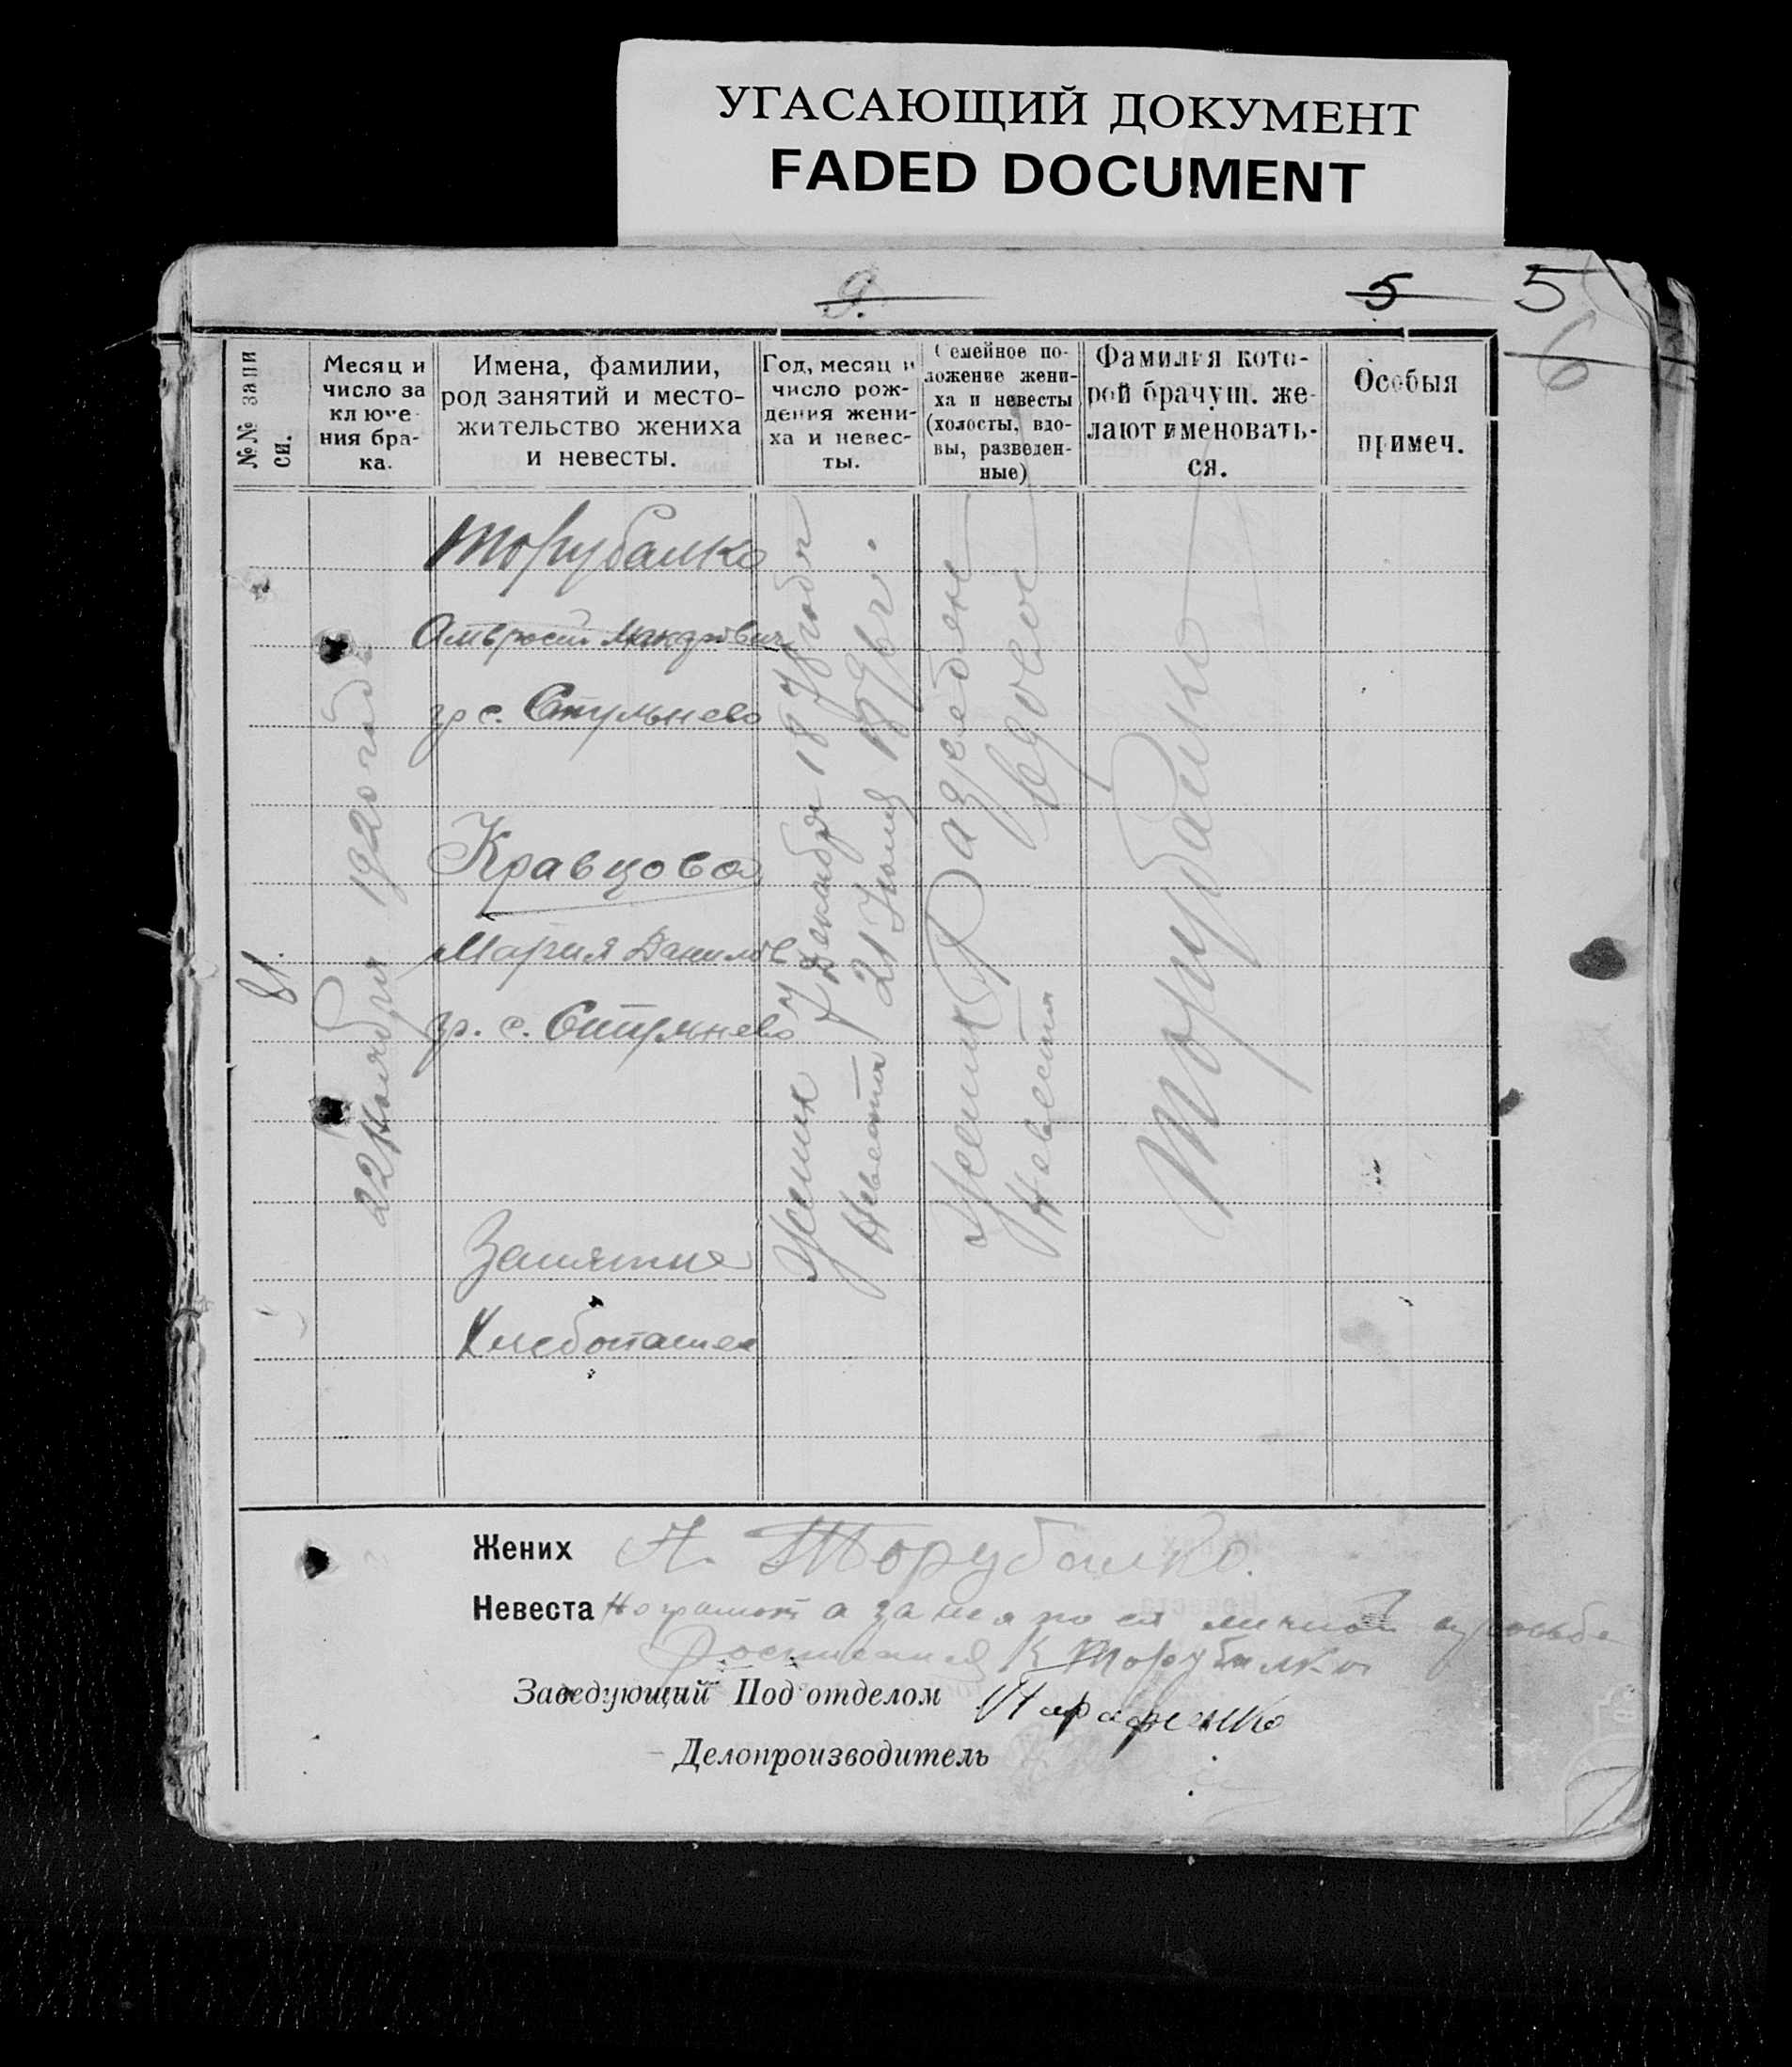 УГАСАЮЩИЙ ДОКУМЕНТ
FADED DOCUMENT
9.
5
5
6
№№ запи
си.
Месяц и
число за
ключе-
ния бра-
ка.
Имена, фамилии,
род занятий и место-
жительство жениха
и невесты.
Год, месяц и
число рож-
дения жени-
ха и невес-
ты.
Семейное по-
ложение жени-
ха и невесты
(холосты, вдо-
вы, разведен-
ные)
Фамилия кото-
рой брачущ. же-
лают именовать-
ся.
Особыя
примеч.
81.
22 Ноября 1920 года
Торубалко
Амвросий Макарович
гр с. Стульнево
Кравцова
Мария Данилов
гр. с. Стульнево
Занятие
Хлебопашец
Жених 7 Декабря 1878 года
Невеста 21 Июня
Жених Разведен
Невеста вдова
Торубалко
Жених А. Торубалко.
Невеста а за нея по ея личной просьбе
К Торубалко
Заведующий Подотделом
Делопроизводитель